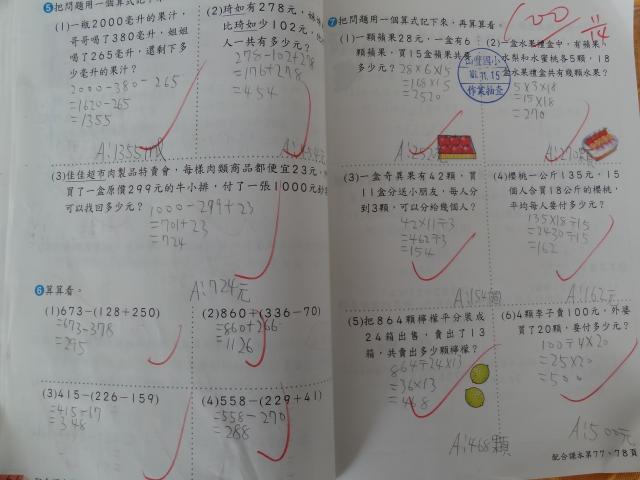 5 把問題用一個算式記下來,再算算看。
(1)一瓶2000毫升的果汁,
哥哥喝了380毫升,姐姐
喝了265毫升,還剩下多
少毫升的果汁?
2000-380-265
=1620-265
=1355
A:1355
(2)琦如有278元,
比琦如少102元,
人一共有多少元?
278-102+278
=176+278
=454
(3)佳佳超市肉製品特賣會,每樣肉類商品都便宜23元,
買了一盒原價299元的牛小排,付了一張1000元鈔
可以找回多少元?
1000-299+23
=701+23
=724
A:724元
6 算算看。
(1)673-(128+250)
=673-378
=295
(2)860+(336-70)
=860+266
=1126
(3)415-(226-159)
=415-17
=348
(4)558-(229+41)
=558-270
=288
7 把問題用一個算式記下來,再算算看。
100
11/14
(1)一顆蘋果28元,一盒有6
顆蘋果,買15盒蘋果共
多少元?
28×6×15
=168×15
=2520
A:2520
(2)一盒水果禮盒中,有蘋果、
水梨和水蜜桃各5顆,18
盒水果禮盒共有幾顆水果?
5×3×18
=15×18
=270
A:270顆
國小
11.15
作業抽查
(3)一盒奇異果有42顆,買
11盒分送小朋友,每人分
到3顆,可以分給幾個人?
42×11÷3
=462÷3
=154
A:154個
(4)櫻桃一公斤135元,15
個人合買18公斤的櫻桃,
平均每人要付多少元?
135×18÷15
=2430÷15
=162
A:162元
(5)把864顆檸檬平分裝成
24箱出售,賣出了13
箱,共賣出多少顆檸檬?
864÷24×13
=36×13
=468
A:468顆
(6)4顆李子賣100元,外婆
買了20顆,要付多少元?
100÷4×20
=25×20
=500
A:500元
配合課本第77、78頁